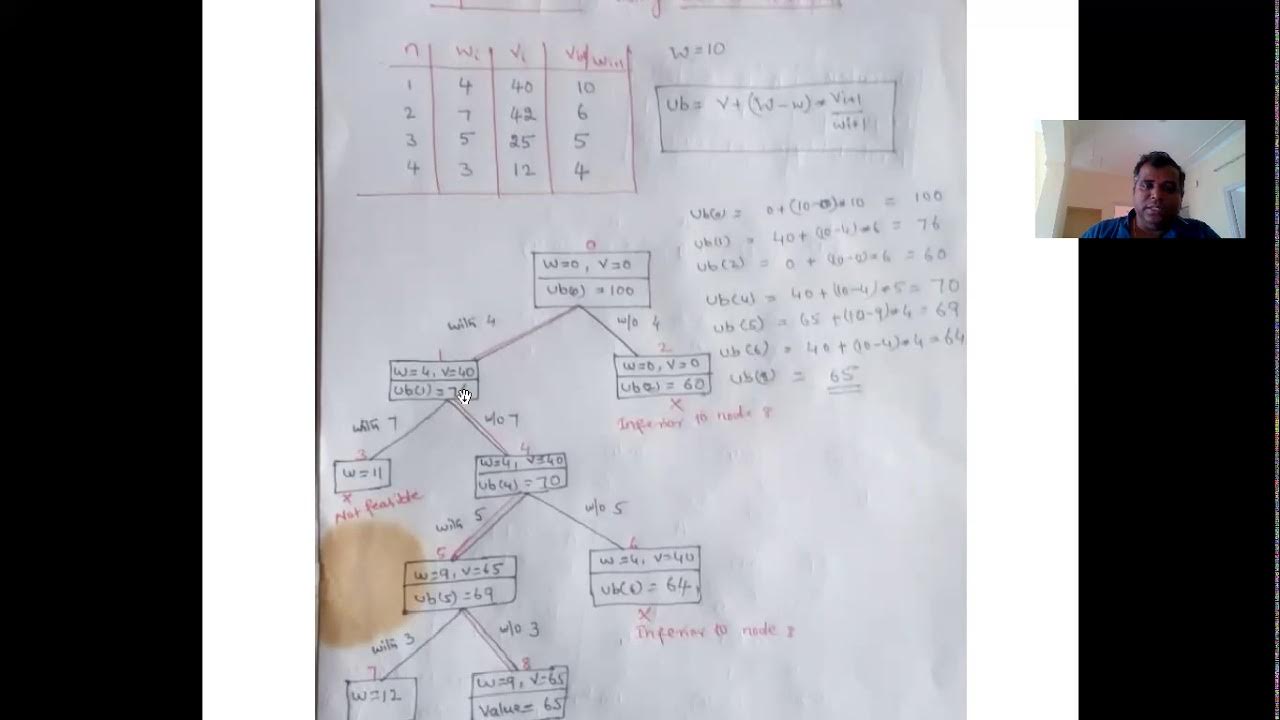 n wi vi vi/wi+1
1 4 40 10
2 7 42 6
3 5 25 5
4 3 12 4
W=10
ub = v+(W-w)*vi+1/wi+1
ub(0) = 0+(10-0)*10 = 100
ub(1) = 40+(10-4)*6 = 76
ub(2) = 0 + (10-0)*6 = 60
ub(4) = 40+(10-4)*5 = 70
ub(5) = 65+(10-9)*4 = 69
ub(6) = 40+(10-4)*4 = 64
ub(8) = 65
0
w=0, v=0
ub(0) = 100
with 4
w/o 4
1
w=4, v=40
ub(1) = 7
2
w=0, v=0
ub(2) = 60
X
Inferior to node 8
with 7
w/o 7
3
w=11
X
Not feasible
4
w=4, v=40
ub(4) = 70
with 5
w/o 5
5
w=9, v=65
ub(5) = 69
6
w=4, v=40
ub(6) = 64
X
Inferior to node 8
with 3
w/o 3
7
w=12
8
w=9, v=65
Value = 65